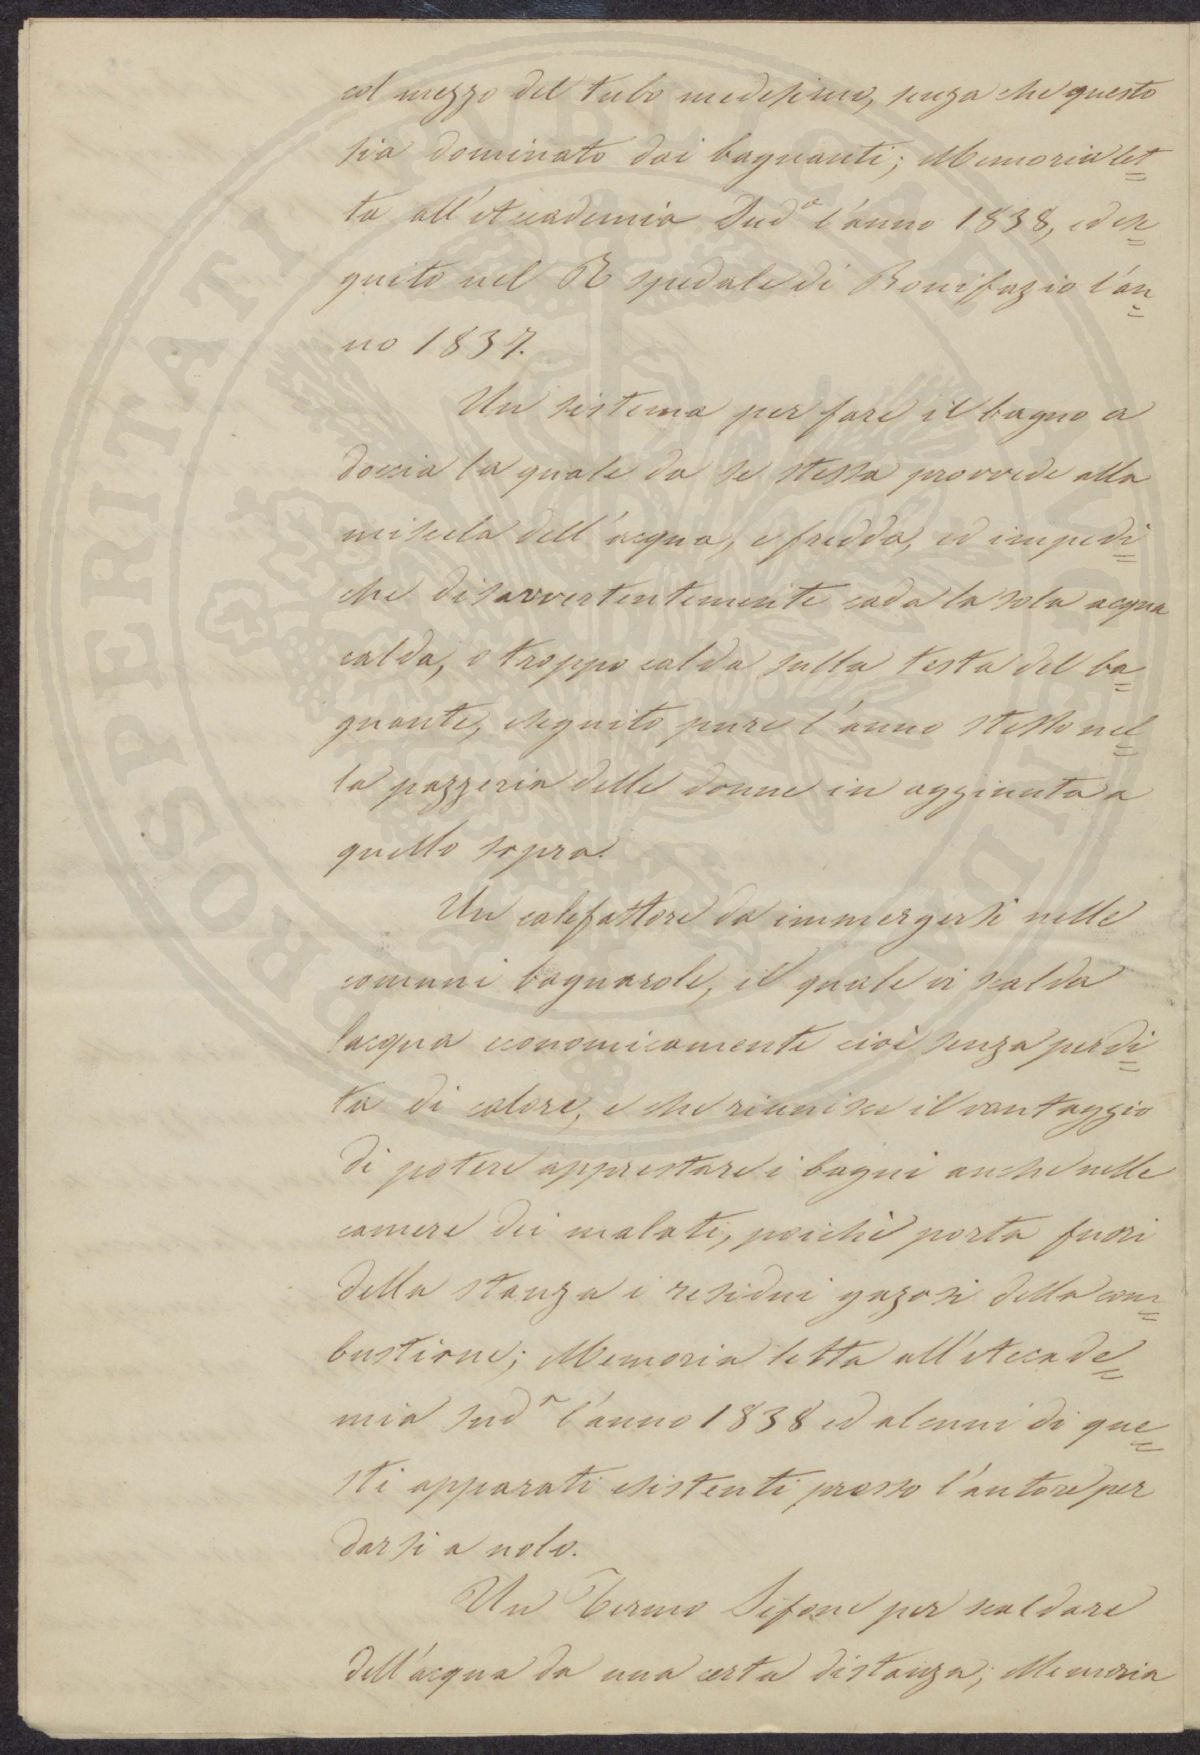 col mezzo del tubo medesimo, senza che questo
sia dominato dai bagnanti; Memoria let=
ta all'Accademia Sud.a l'anno 1838, ed ese=
guito nel R spedale di Bonifazio l'an=
no 1837.
Un sistema per fare il bagno a
doccia la quale da se stessa provvede alla
miscela dell'acqua, e fredda, ed impedi=
che disavvertentemente cada la sola acqua
calda, o troppo calda sulla testa del ba=
gnante, eseguito pure l'anno stesso nel=
la pazzeria delle donne in aggiunta a
quello sopra.
Un calefattore da immergersi nelle
comuni bagnarole, il quale vi scalda
l'acqua economicamente cioè senza perdi=
ta di calore, e che riunisce il vantaggio
di potere apprestare i bagni anche nelle
camere dei malati, poichè porta fuori
della stanza i residui gazosi della com=
bustione; Memoria letta all'Accade=
mia sud.a l'anno 1838 ed alcuni di que=
sti apparati esistenti presso l'autore per
darsi a nolo.
Un Termo Sifone per scaldare
dell'acqua da una certa distanza; Memoria
PROSPERITATI PUBLICAE